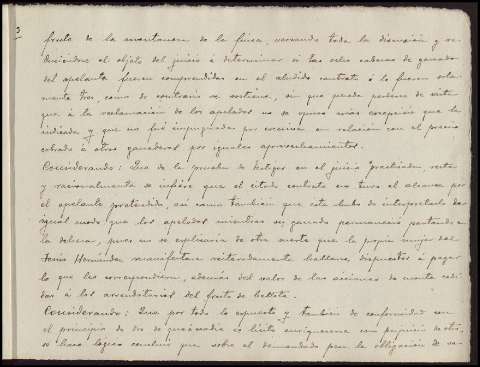 3
fruto de la montanera de la finca, versando toda la discusión y re-
duciéndose el objeto del juicio á determinar si las ocho cabezas de ganado
del apelante fueron comprendidas en el aludido contrato ó lo fueron sola-
mente tres, como de contrario se sostiene, sin que pueda perderse de vista
que á la reclamación de los apelados no se opuso más excepción que la
indicada y que no fué impugnada por excesiva en relación con el precio
cobrado á otros ganaderos por iguales aprovechamientos.
Considerando: Que de la prueba de testigos en el juicio practicada, recta
y racionalmente se infiere que el citado contrato no tuvo el alcance por
el apelante pretendido, así como también que este hubo de interpretarlo de
igual modo que los apelados mientras su ganado permaneció pastando en
la dehesa, pues no se explicaría de otra suerte que la propia mujer del
Jesús Hernández manifestase reiteradamente hallarse dispuestos á pagar
lo que les correspondiera, además del valor de las encinas de monte cedi-
das á los arrendatarios del fruto de bellota.
Considerando: Que por todo lo expuesto y también de conformidad con
el principio de que nadie es lícito enriquecerse con perjuicio de otro,
se hace lógico concluir que sobre el demandado pesa la obligación de sa-